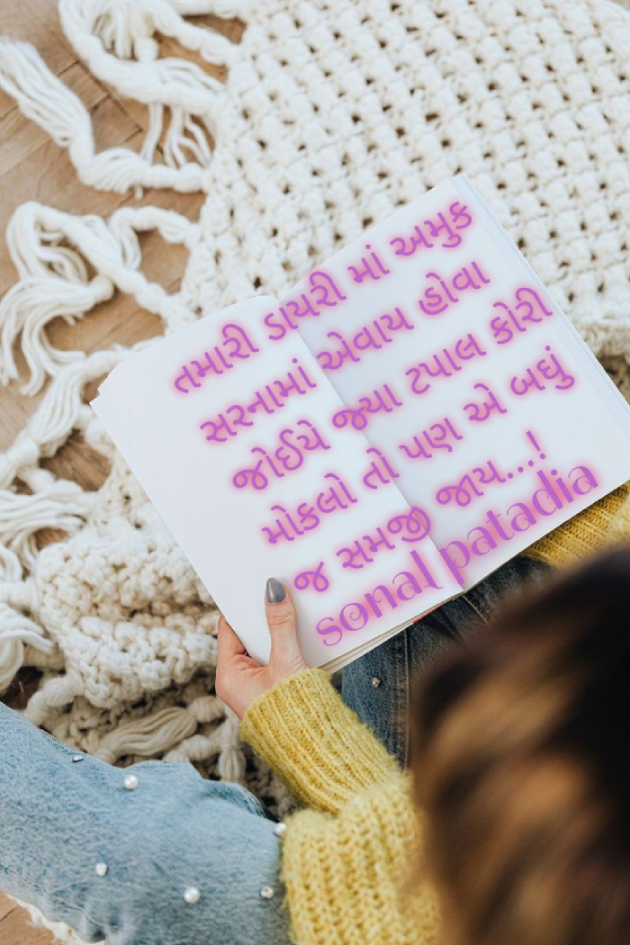 તમારી ડાયરી માં અમુક
સરનામાં એવાય હોવા
જોઈયે જ્યા ટપાલ કોરી
મોકલો તો પણ એ બધું
જ સમજી જાય...!
sonal patadia